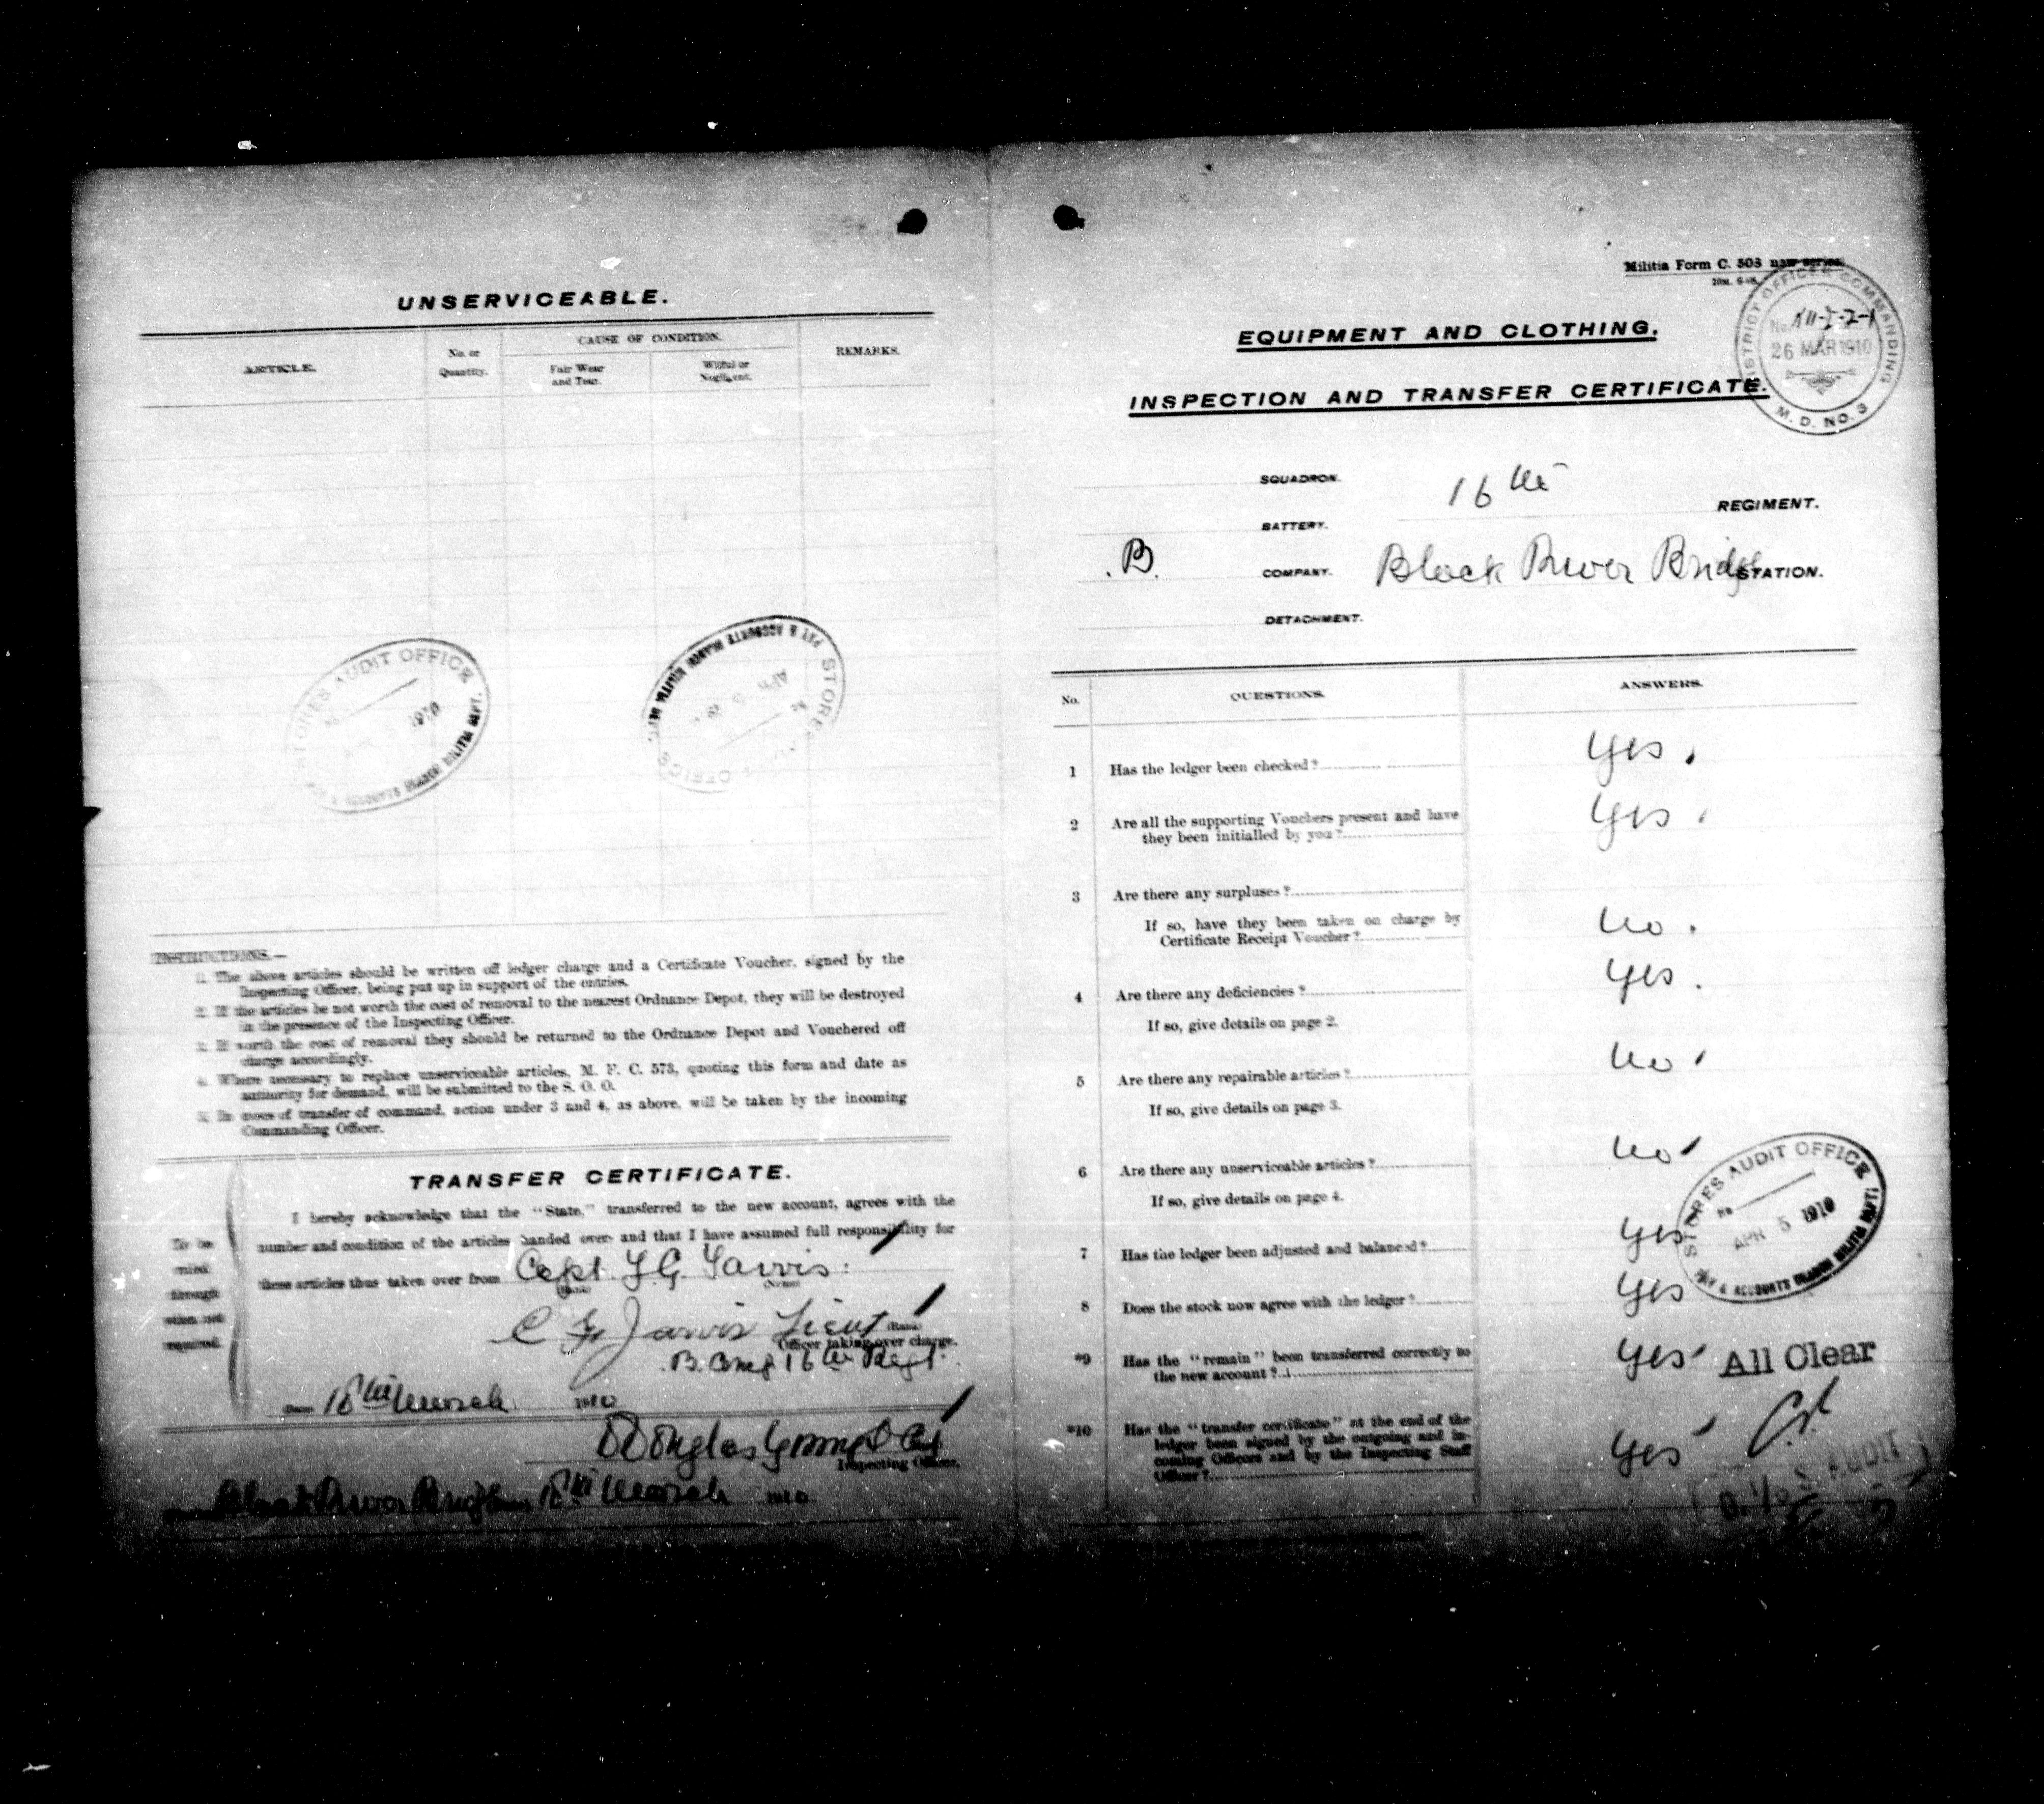 UNSERVICEABLE.
ARTICLE.
No. or Quantity.
CAUSE OF CONDITION.
Fair Wear and Tear.
Wilful or Negligent.
REMARKS.
STORES AUDIT OFFICE
1910
PAY & ACCOUNTS BRANCH MILITIA DEPT.
STORES AUDIT OFFICE
PAY & ACCOUNTS BRANCH MILITIA DEPT.
INSTRUCTIONS.—
1. The above articles should be written off ledger charge and a Certificate Voucher, signed by the
Inspecting Officer, being put up in support of the entries.
2. If the articles be not worth the cost of removal to the nearest Ordnance Depot, they will be destroyed
in the presence of the Inspecting Officer.
3. If worth the cost of removal they should be returned to the Ordnance Depot and Vouchered off
charge accordingly.
4. Where necessary to replace unserviceable articles, M. F. C. 573, quoting this form and date as
authority for demand, will be submitted to the S. O. O.
5. In cases of transfer of command, action under 3 and 4, as above, will be taken by the incoming
Commanding Officer.
TRANSFER CERTIFICATE.
I hereby acknowledge that the "State," transferred to the new account, agrees with the
number and condition of the articles handed over and that I have assumed full responsibility for
these articles thus taken over from Capt. Jarvis.
(Rank) (Name)
To be
through
required.
Jarvis Lieut (Rank)
Officer taking over charge.
B. Comp 16th Regt.
Date 18th March 1910
Douglas
Inspecting Officer.
Black River Bridge 18th March 1910
Militia Form C. 503 new series.
DISTRICT OFFICER COMMANDING
No.
26 MAR 1910
M. D. NO. 3
EQUIPMENT AND CLOTHING.
INSPECTION AND TRANSFER CERTIFICATE.
SQUADRON.
16th REGIMENT.
BATTERY.
B. COMPANY. Black River Bridge STATION.
DETACHMENT.
No. QUESTIONS. ANSWERS.
1 Has the ledger been checked? Yes.
2 Are all the supporting Vouchers present and have
they been initialled by you? Yes.
3 Are there any surpluses?
If so, have they been taken on charge by
Certificate Receipt Voucher? No.
4 Are there any deficiencies? Yes.
If so, give details on page 2.
5 Are there any repairable articles? No
If so, give details on page 3.
6 Are there any unserviceable articles? No
If so, give details on page 4.
7 Has the ledger been adjusted and balanced? Yes
8 Does the stock now agree with the ledger? Yes
STORES AUDIT OFFICE
No
APR 5 1910
PAY & ACCOUNTS BRANCH MILITIA DEPT.
*9 Has the "remain" been transferred correctly to
the new account? Yes
All Clear
*10 Has the "transfer certificate" at the end of the
ledger been signed by the outgoing and in-
coming Officers and by the Inspecting Staff
Officer? Yes
AUDIT